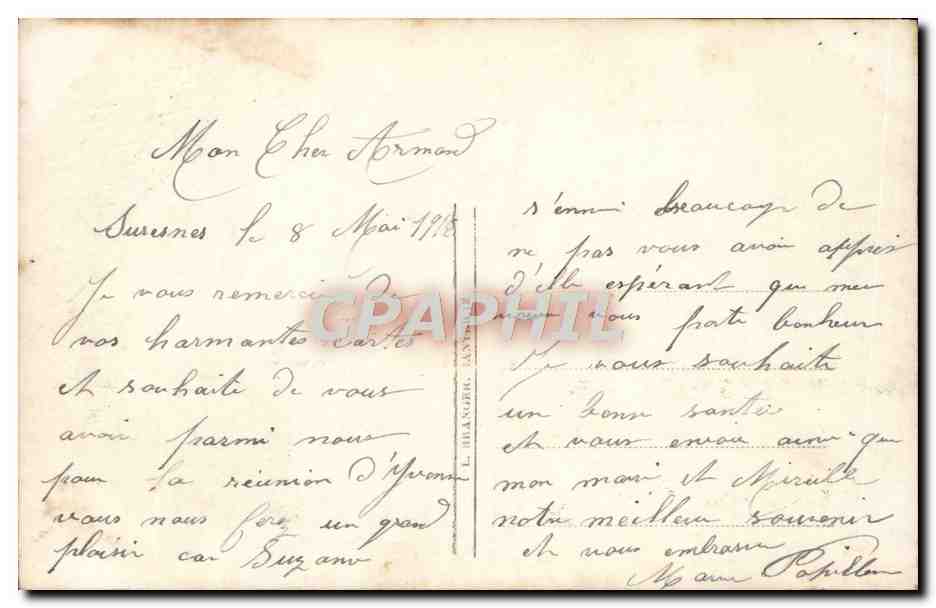 Mon Cher Armand
Suresnes le 8 Mai 1918
Je vous remercie de
vos harmantes cartes
et souhaite de vous
avoir parmi nous
pour la réunion d'Yvonne
vous nous fere un grand
plaisir car Suzane
s'ennui beaucoup de
ne pas vous avoir
d'elle espérant que
vous bonheur
Je vous souhaite
un bonne santée
et vous envoie ainsi que
mon mari et Mireille
notre meilleur souvenir
et vous embrasse
Papillon
CPAPHIL